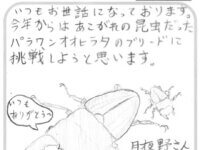 いつもお世話になっております。
今年からはあこがれの昆虫だった
パラワンオオヒラタのブリードに
挑戦しようと思います。
いつも
ありがとう
月板野さん